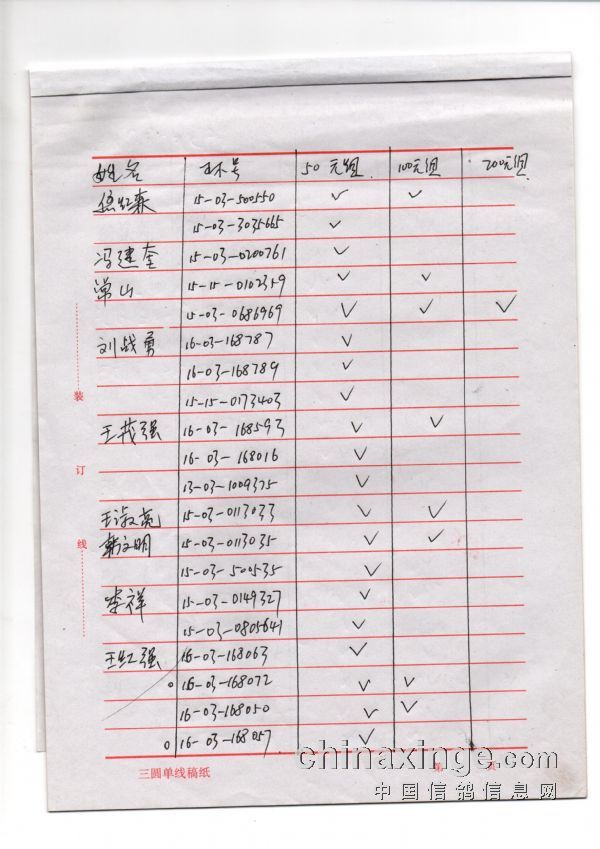 姓名 环号 50元组 100元组 200元组
徐红森 15-03-500550 ✓ ✓
15-03-3035665 ✓
冯建奎 15-03-0200761 ✓
常山 15-15-0102359 ✓ ✓
15-03-0686969 ✓ ✓ ✓
刘战勇 16-03-168787 ✓
16-03-168789 ✓
15-15-0173403 ✓
王茂强 16-03-168593 ✓ ✓
16-03-168016 ✓
13-03-1009375 ✓
王淑亮 15-03-0113033 ✓ ✓
韩文明 15-03-0113035 ✓ ✓
15-03-500535 ✓
李祥 15-03-0149327 ✓
15-03-0805641 ✓
王红强 16-03-168063 ✓
16-03-168072 ✓ ✓
16-03-168050 ✓ ✓
16-03-168057 ✓
装
订
线
三圆单线稿纸
第
chinaxinge.com
中国信鸽信息网